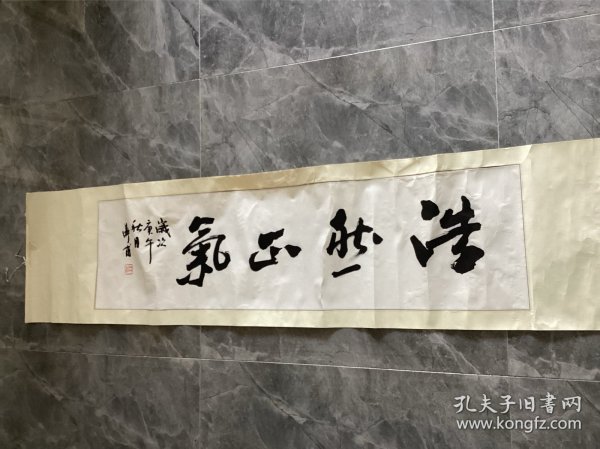 浩然正氣
歲次
庚午
秋月
孔夫子旧書网
www.kongfz.com